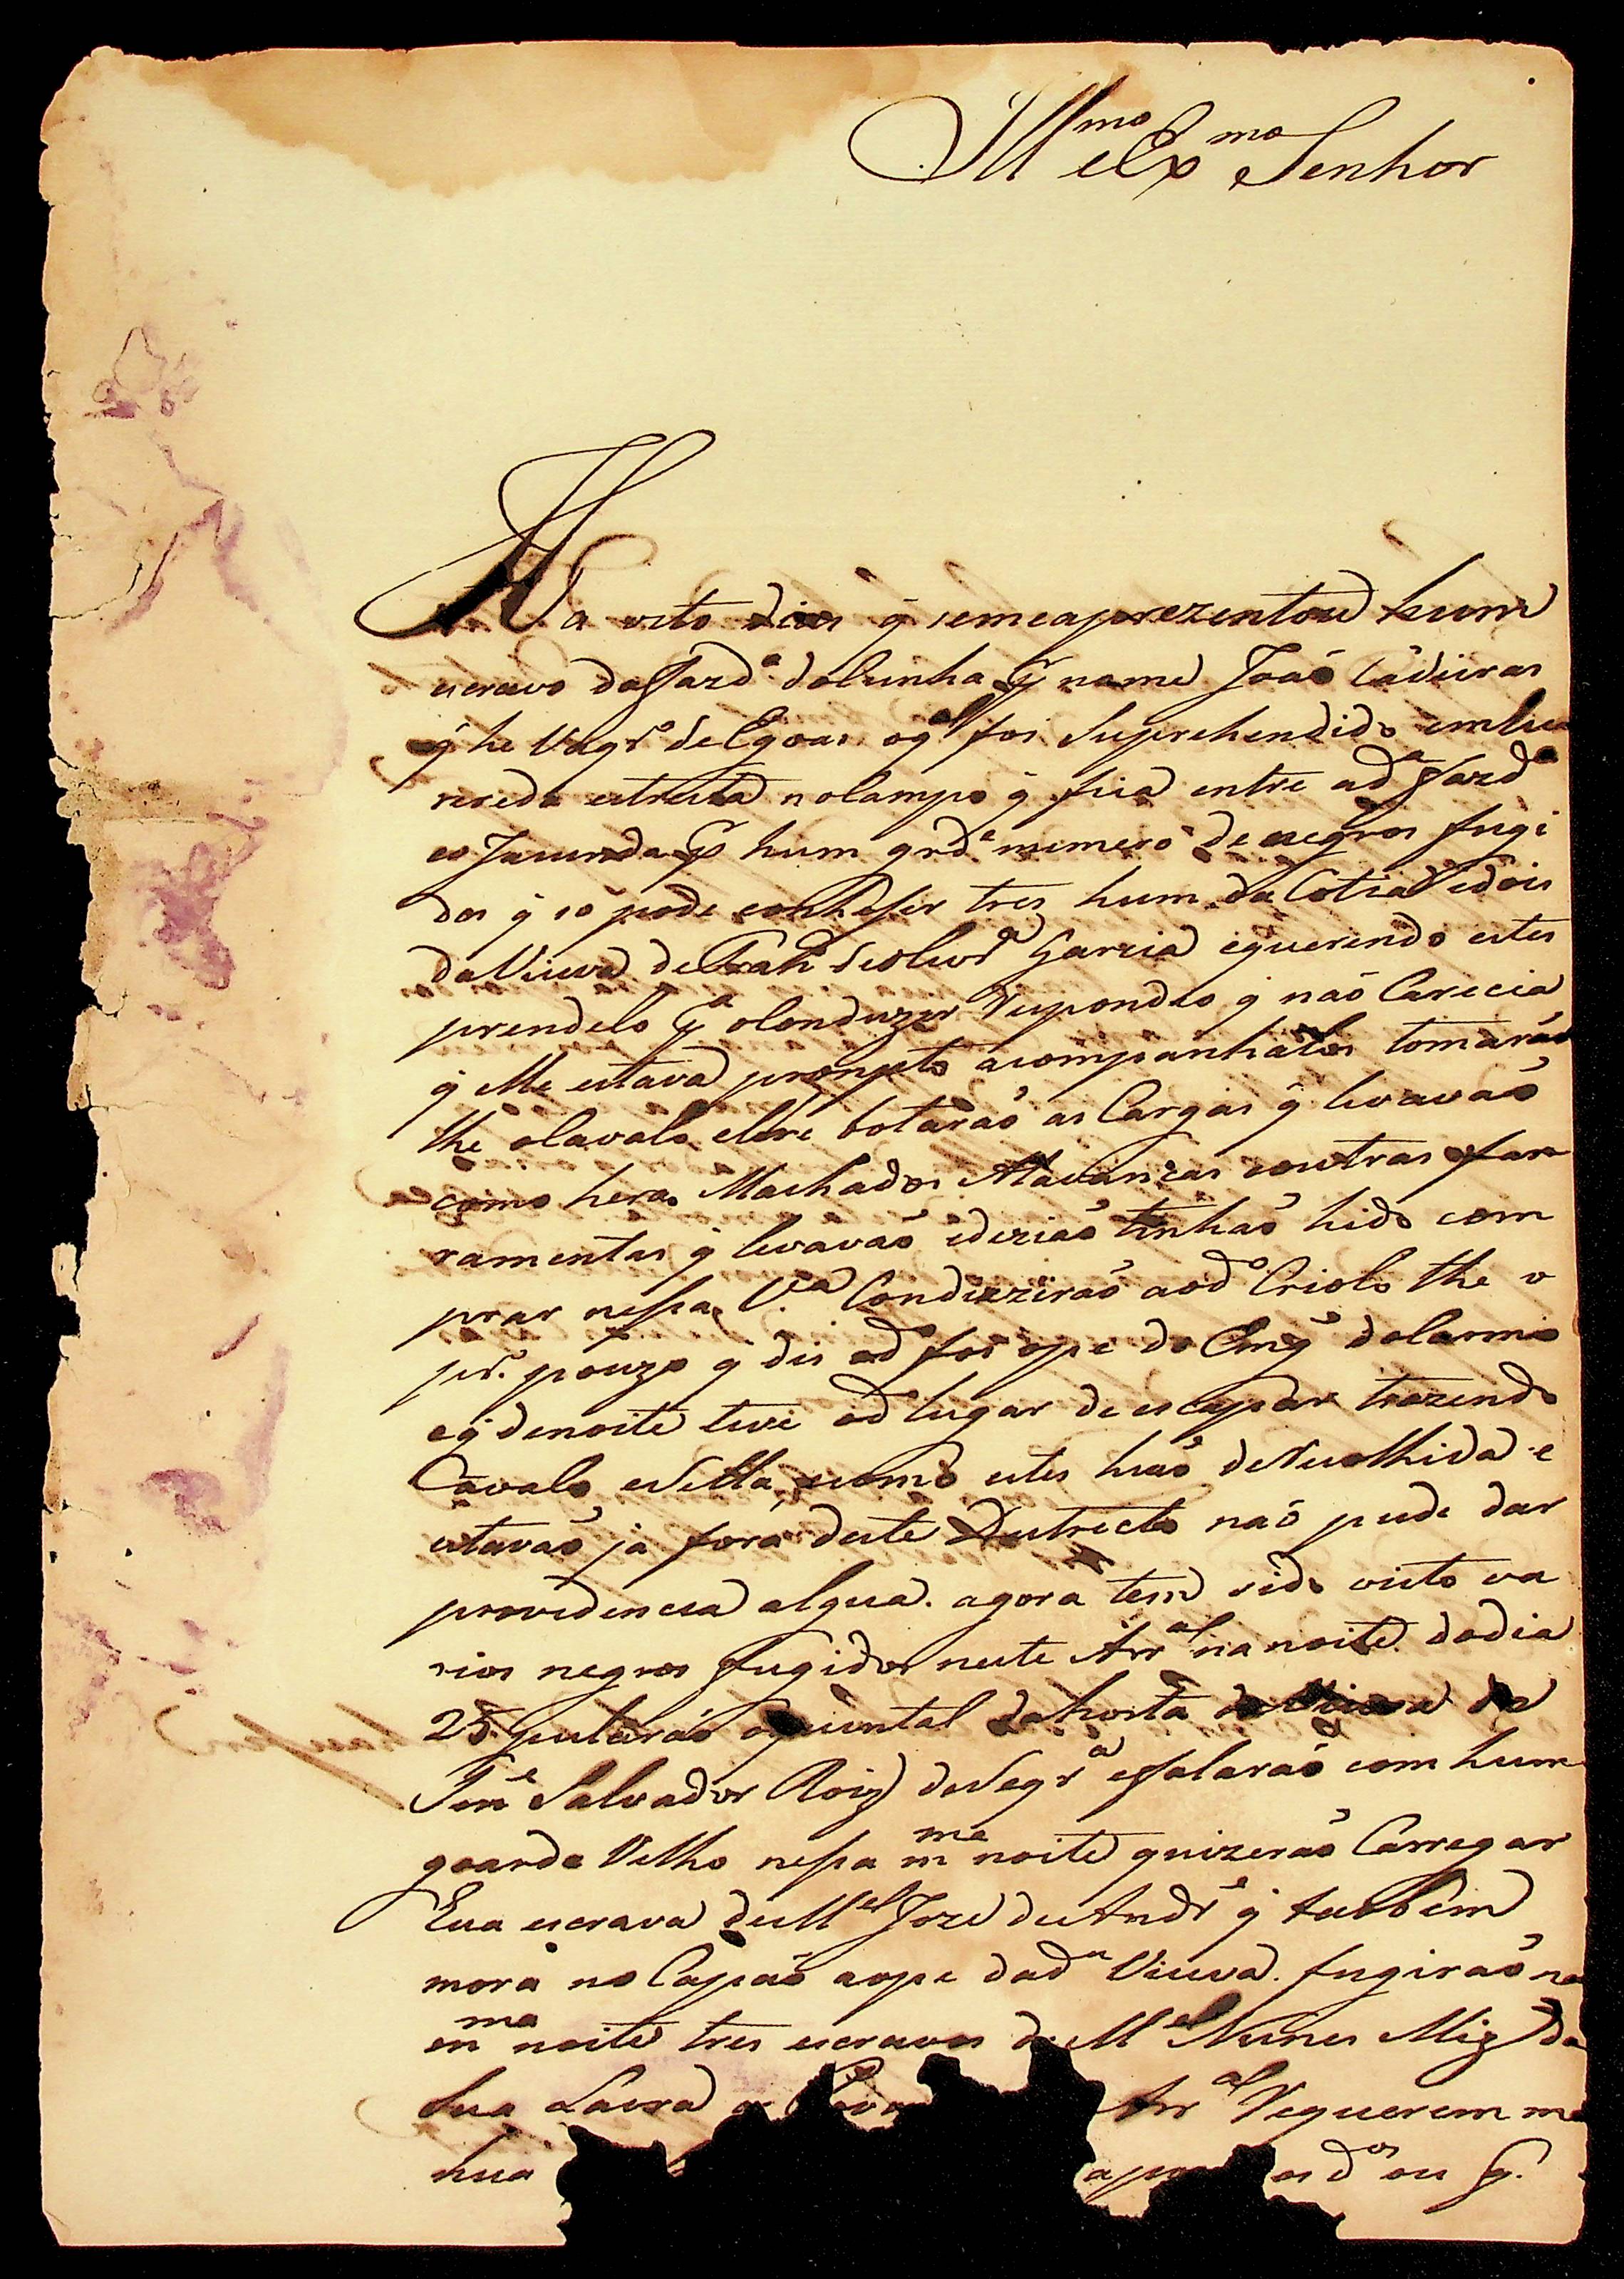 Ill.mo e Ex.mo Senhor
Ha oito dias q̃ seme aprezentou hum
escravo da Fazd.a do Cunha p̃ nome João Cadeiras
q̃ he Vaqr.o de Egoas oq.l foi Suprehendido em hua
vereda estreita no Campo q̃ fica entre a d.a Fazd.a
eo Jacunda p̃ hum grd.e numero de negros fugi
dos q̃ só pode conheser tres hum da Cotia e dois
da Viuva de Garcia e querendo estes
prendelo p.a o Conduzir Respondeo q̃ não Carecia
q̃ elle estava prompto acompanhalos tomarão
lhe o Cavalo e lhe botarão as Cargas q̃ levavão
como hera Machados Alavancas e outras farr
ramentas q̃ levavão e dezião tinhão hido com
prar nesa V.a Conduzirão ao d.o Criolo the o
pr.o pouzo q̃ dis o d.o foi ope do Eng.o do Carmo
e q̃ denoite teve o d.o lugar de escapar trazendo
Cavalo e Sella, e como estes hião de Recolhida e
estavão já fora deste Destrecto não pude dar
providencia algua. agora tem sido visto va
rios negros fugidos neste Arr.al na noite do dia
25 Pularão o quintal da horta da Viuva do
Ten.e Salvador Roiz de Seqr.a e falarão com hum
goarda Velho nesa m.ma noite quizerão Carregar
hua escrava de M.el Joze de Andr.e q̃ tambem
mora no Capão aope da d.a Viuva. fugirão na
m.ma noite tres escravos de M.el Nunes Miz da
Sua Lavra Arr.al Requerem me
hua os d.os ou